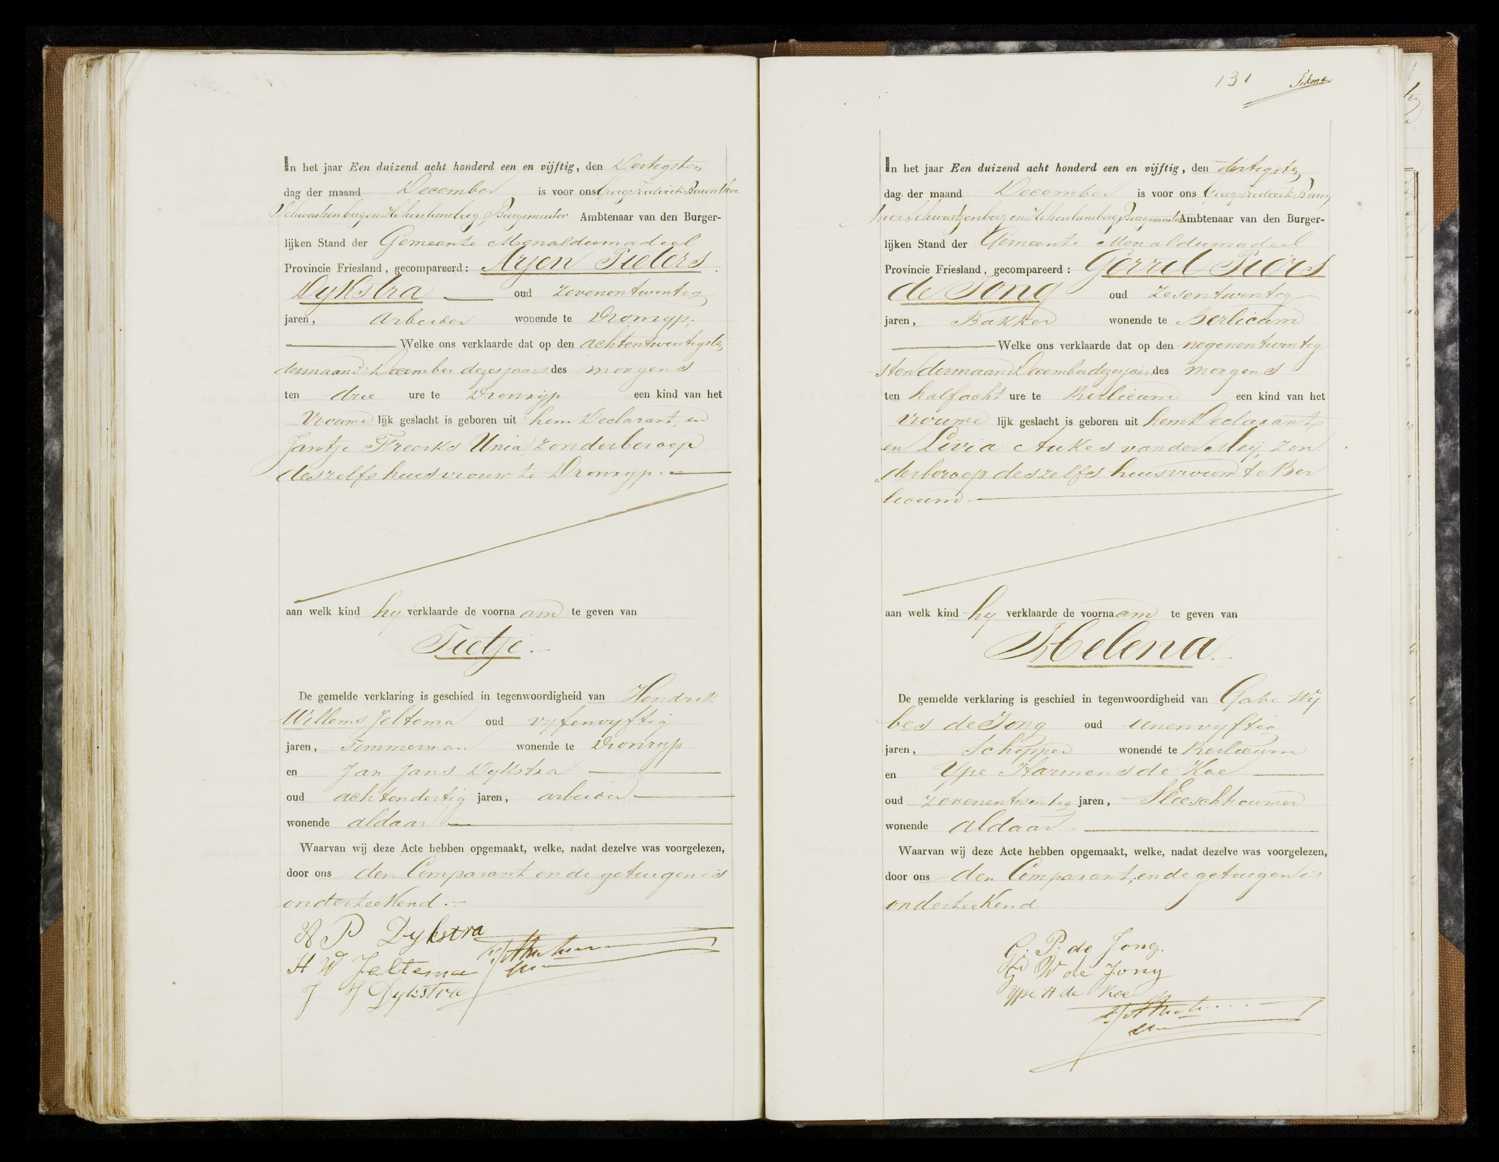 In het jaar Een duizend acht honderd een en vijftig, den Dertigsten
dag der maand December is voor ons
Burgemeester Ambtenaar van den Burger-
lijken Stand der Gemeente Menaldumadeel
Provincie Friesland, gecompareerd: Arjen Pieters
Dykstra oud zevenentwintig
jaren, Arbeider wonende te Dronryp,
Welke ons verklaarde dat op den achtentwintigste
dermaand December dezes jaars des morgens
ten drie ure te Dronryp een kind van het
Vrouwe lijk geslacht is geboren uit hem Declarant, en
Jantje Freerks Unia zonder beroep
deszelfs huisvrouw te Dronryp.
aan welk kind hy verklaarde de voorna am te geven van
Tietje.
De gemelde verklaring is geschied in tegenwoordigheid van Hendrik
Willems Jeltema oud vyfenvyftig
jaren, Timmerman wonende te Dronryp
en Jan Jans Dykstra
oud achtendertig jaren, arbeider
wonende aldaar
Waarvan wij deze Acte hebben opgemaakt, welke, nadat dezelve was voorgelezen,
door ons den Comparant en de getuigen is
onderteekend.
A P Dykstra
H W Jeltema
J J Dykstra
131
In het jaar Een duizend acht honderd een en vijftig, den dertigsten
dag der maand December is voor ons
Ambtenaar van den Burger-
lijken Stand der Gemeente Menaldumadeel
Provincie Friesland, gecompareerd: Gerrit Piers
de Jong oud zesentwintig
jaren, Bakker wonende te Berlicum
Welke ons verklaarde dat op den negenentwintig
sten dermaand December dezes jaars des morgens
ten half acht ure te Berlicum een kind van het
vrouwe lijk geslacht is geboren uit hem Declarant
en Livia Aukes van der Meij, zon
der beroep deszelfs huisvrouw te Ber
licum.
aan welk kind hy verklaarde de voorna am te geven van
Helena.
De gemelde verklaring is geschied in tegenwoordigheid van Gabe Wy
bes de Jong oud eenenvyftig
jaren, Schipper wonende te Berlicum
en Ype Harmens de Koe
oud zevenentwintig jaren, Vleeschhouwer
wonende aldaar
Waarvan wij deze Acte hebben opgemaakt, welke, nadat dezelve was voorgelezen,
door ons den Comparant, en de getuigen is
onderteekend
G. P. de Jong.
G W de Jong
Ype H de Koe